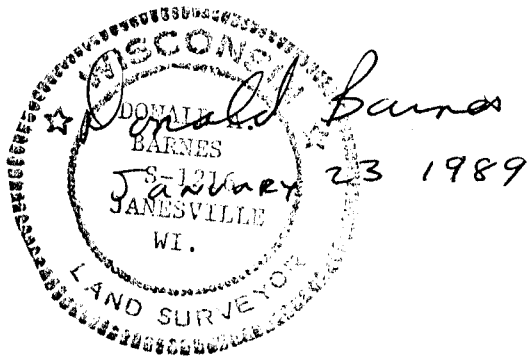 WISCONSIN
DONALD
BARNES
JANESVILLE
WI.
LAND SURVEYOR
Donald Barnes
January 23 1989